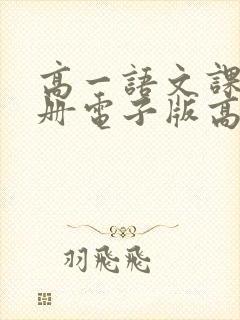 高一語文課
冊電子版高
羽飛飛